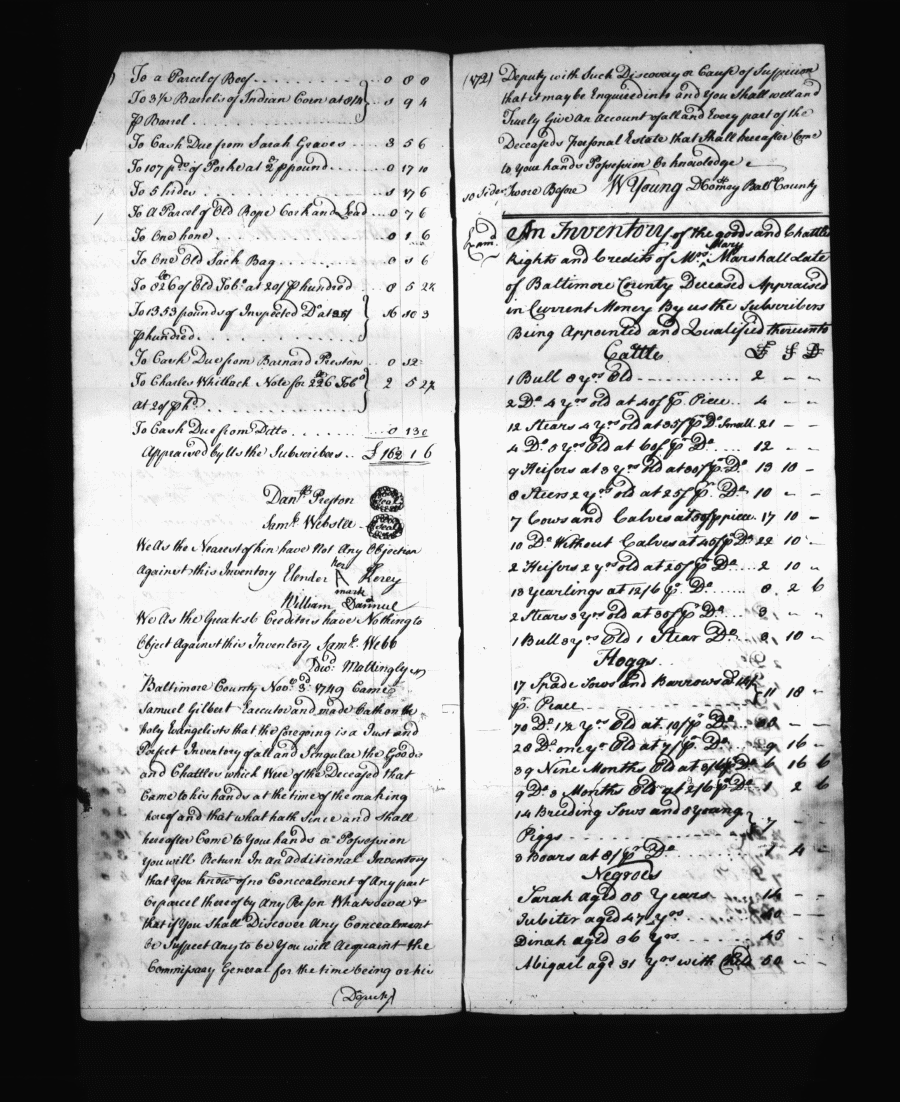 To a Parcel of Beef . . . . . . . . . . 0 8 8
To 3½ Barrels of Indian Corn at 8/4
⅌ Barrel . . . . . . . . . . 9 4
To Cash Due from Sarah Graves . . . . 3 5 6
To 107 pds of Porke at 2d ⅌ pound . . . . 0 17 10
To 5 hides . . . . . . . . . . 17 6
To A Parcel of Old Rope Cork and Lead . . 0 7 6
To One hone . . . . . . . . . . 0 1 6
To One Old Sack Bag . . . . . . . . 0 6
To 826 of Old Tobo at 20/ ⅌ hundred . . . . 8 5 2¼
To 1353 pounds of Inspected Do at 25/
⅌ hundred . . . . . . . . . . 16 3
To Cash Due from Barnard Preston . . . . 0 12
To Charles Whitlach Note for 226 Tobo
at 20/ ⅌ hd . . . . . . . . . . 2 5 2¼
To Cash Due from Ditto . . . . . . 0 13 0
Appraised by Us the Subscribers . . £ 163 1 6
Danll Preston Seal
Samll Webster Seal
We As the Nearest of kin have Not Any Objection
Against this Inventory Elender her mark
William Dannuel
We As the Greatest Creditors have Nothing to
Object Against this Inventory Samll Webb
Mattingly
Baltimore County Novr 3d 1749 Came
Samuel Gilbert Executor and made Oath on the
holy Evangelists that the foregoing is a Just and
Perfect Inventory of all and Singular the Goods
and Chattles which Were of the Deceased that
Came to his hands at the time of the making
hereof and that what hath Since and Shall
hereafter Come to Your hands or Possession
You will Return In an Additional Inventory
that You know of no Concealment of Any part
or parcel thereof by Any Person Whatsoever &
that if You Shall Discover Any Concealment
or Suspect Any to be You will Acquaint the
Commissary General for the time being or his
(Deputy)
(172) Deputy with Such Discovery or Cause of Suspicion
that it may be Enquired into and You Shall well and
Truely Give An Account of all and Every part of the
Deceaseds Personal Estate that Shall hereafter Come
to your hands Possession or knowledge
10 Sides Swore Before W Young D Comsy Balt County
An Inventory of the goods and Chattles
Rights and Credits of Mrs Mary Marshall Late
of Baltimore County Deceased Appraised
in Current Money By us the Subscribers
Being Appointed and Qualified thereunto
Cattle £ S D
1 Bull 8 yrs Old . . . . . . . . 2 - -
2 Do 4 yrs old at 40/ ⅌ Piece . . 4 - -
12 Stears 4 yrs old at 35/ ⅌ Do Small . 21 - -
4 Do 8 yrs Old at 60/ ⅌ Do . . . . 12 - -
9 Heifers at 3 yrs Old at 30/ ⅌ Do . 13 10 -
8 Steers 2 yrs old at 25/ ⅌ Do . . 10 - -
7 Cows and Calves at 50/ ⅌ piece . 17 10 -
10 Do Without Calves at 45/ ⅌ Do 22 10 -
2 Heifers 2 yrs old at 25/ ⅌ Do . . . 2 10 -
13 Yearlings at 12/6 ⅌ Do . . . . 8 2 6
2 Stears 3 yrs old at 30/ ⅌ Do . . . 3 - -
1 Bull 3 yrs Old 1 Stear Do . . . 3 10 -
Hoggs
17 Spade Sows and Barrows at 14/
⅌ Peace . . . . . . . . 11 18 -
70 Do 1½ yrs Old at 10/ ⅌ Do . . . - -
28 Do one yr Old at 7/ ⅌ Do . . . 9 16 -
39 Nine Months Old at 3/6 ⅌ Do 6 16 6
9 Do 3 Months Old at 2/6 ⅌ Do . 1 2 6
14 Breeding Sows and 8 young
Piggs . . . . . . . . 7 - -
3 Boars at 8/ ⅌ Do . . . . . . 1 4 -
Negroes
Sarah aged 55 Years . . . . 14 - -
Jubiter aged 47 yrs . . . . . - -
Dinah aged 36 Yrs . . . . . . 45 - -
Abigail aged 31 Yrs with Child 50 - -